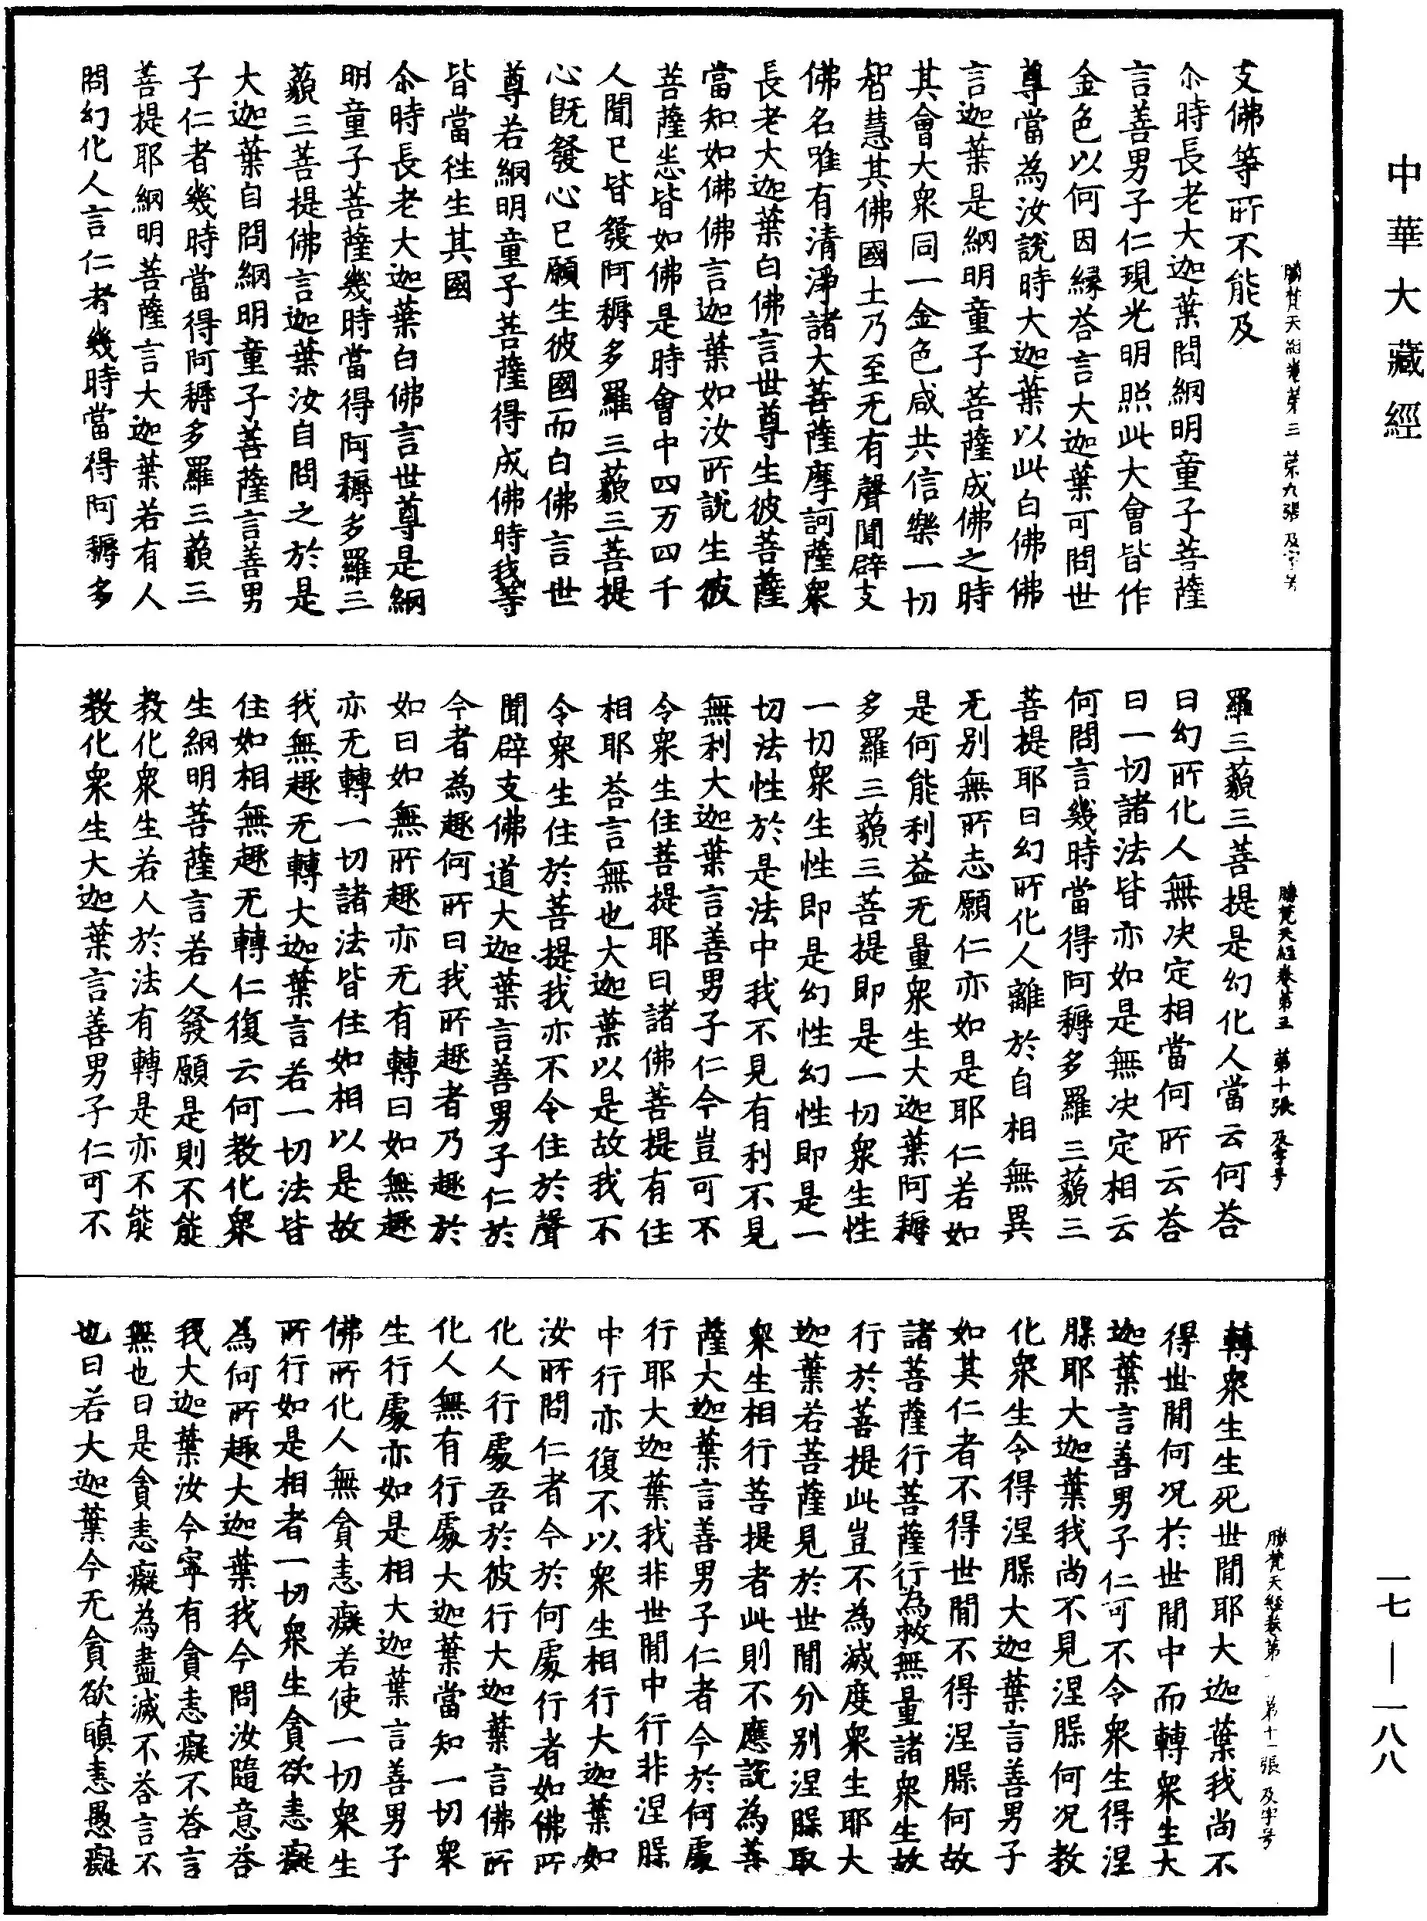 中華大藏經
支佛等所不能及
尒時長老大迦葉問網明童子菩薩
言善男子仁現光明照此大會皆作
金色以何因緣荅言大迦葉可問世
尊當為汝說時大迦葉以此白佛佛
言迦葉是網明童子菩薩成佛之時
其會大衆同一金色咸共信樂一切
智慧其佛國土乃至无有聲聞辟支
佛名唯有清淨諸大菩薩摩訶薩衆
長老大迦葉白佛言世尊生彼菩薩
當知如佛佛言迦葉如汝所說生彼
菩薩悉皆如佛是時會中四万四千
人聞已皆發阿耨多羅三藐三菩提
心既發心已願生彼國而白佛言世
尊若網明童子菩薩得成佛時我等
皆當往生其國
尒時長老大迦葉白佛言世尊是網
明童子菩薩幾時當得阿耨多羅三
藐三菩提佛言迦葉汝自問之於是
大迦葉自問網明童子菩薩言善男
子仁者幾時當得阿耨多羅三藐三
菩提耶網明菩薩言大迦葉若有人
問幻化人言仁者幾時當得阿耨多
勝梵天經卷第三 第九張 及字号
羅三藐三菩提是幻化人當云何荅
曰幻所化人無决定相當何所云荅
曰一切諸法皆亦如是無决定相云
何問言幾時當得阿耨多羅三藐三
菩提耶曰幻所化人離於自相無異
无別無所志願仁亦如是耶仁若如
是何能利益无量衆生大迦葉阿耨
多羅三藐三菩提即是一切衆生性
一切衆生性即是幻性幻性即是一
切法性於是法中我不見有利不見
無利大迦葉言善男子仁今豈可不
令衆生住菩提耶曰諸佛菩提有住
相耶荅言無也大迦葉以是故我不
令衆生住於菩提我亦不令住於聲
聞辟支佛道大迦葉言善男子仁於
今者為趣何所曰我所趣者乃趣於
如曰如無所趣亦无有轉曰如無趣
亦无轉一切諸法皆住如相以是故
我無趣无轉大迦葉言若一切法皆
住如相無趣无轉仁復云何教化衆
生網明菩薩言若人發願是則不能
教化衆生若人於法有轉是亦不能
教化衆生大迦葉言善男子仁可不
勝梵天經卷第五 第十張 及字号
轉衆生生死世間耶大迦葉我尚不
得世間何況於世間中而轉衆生大
迦葉言善男子仁可不令衆生得涅
槃耶大迦葉我尚不見涅槃何況教
化衆生令得涅槃大迦葉言善男子
如其仁者不得世間不得涅槃何故
諸菩薩行菩薩行為救無量諸衆生故
行於菩提此豈不為滅度衆生耶大
迦葉若菩薩見於世間分別涅槃取
衆生相行菩提者此則不應說為菩
薩大迦葉言善男子仁者今於何處
行耶大迦葉我非世間中行非涅槃
中行亦復不以衆生相行大迦葉如
汝所問仁者今於何處行者如佛所
化人行處吾於彼行大迦葉言佛所
化人無有行處大迦葉當知一切衆
生行處亦如是相大迦葉言善男子
佛所化人無貪恚癡若使一切衆生
所行如是相者一切衆生貪欲恚癡
為何所趣大迦葉我今問汝隨意荅
我大迦葉汝今寧有貪恚癡不荅言
無也曰是貪恚癡為盡滅不荅言不
也曰若大迦葉今无貪欲瞋恚愚癡
勝梵天經卷第 第十一張 及字号
一七—一八八